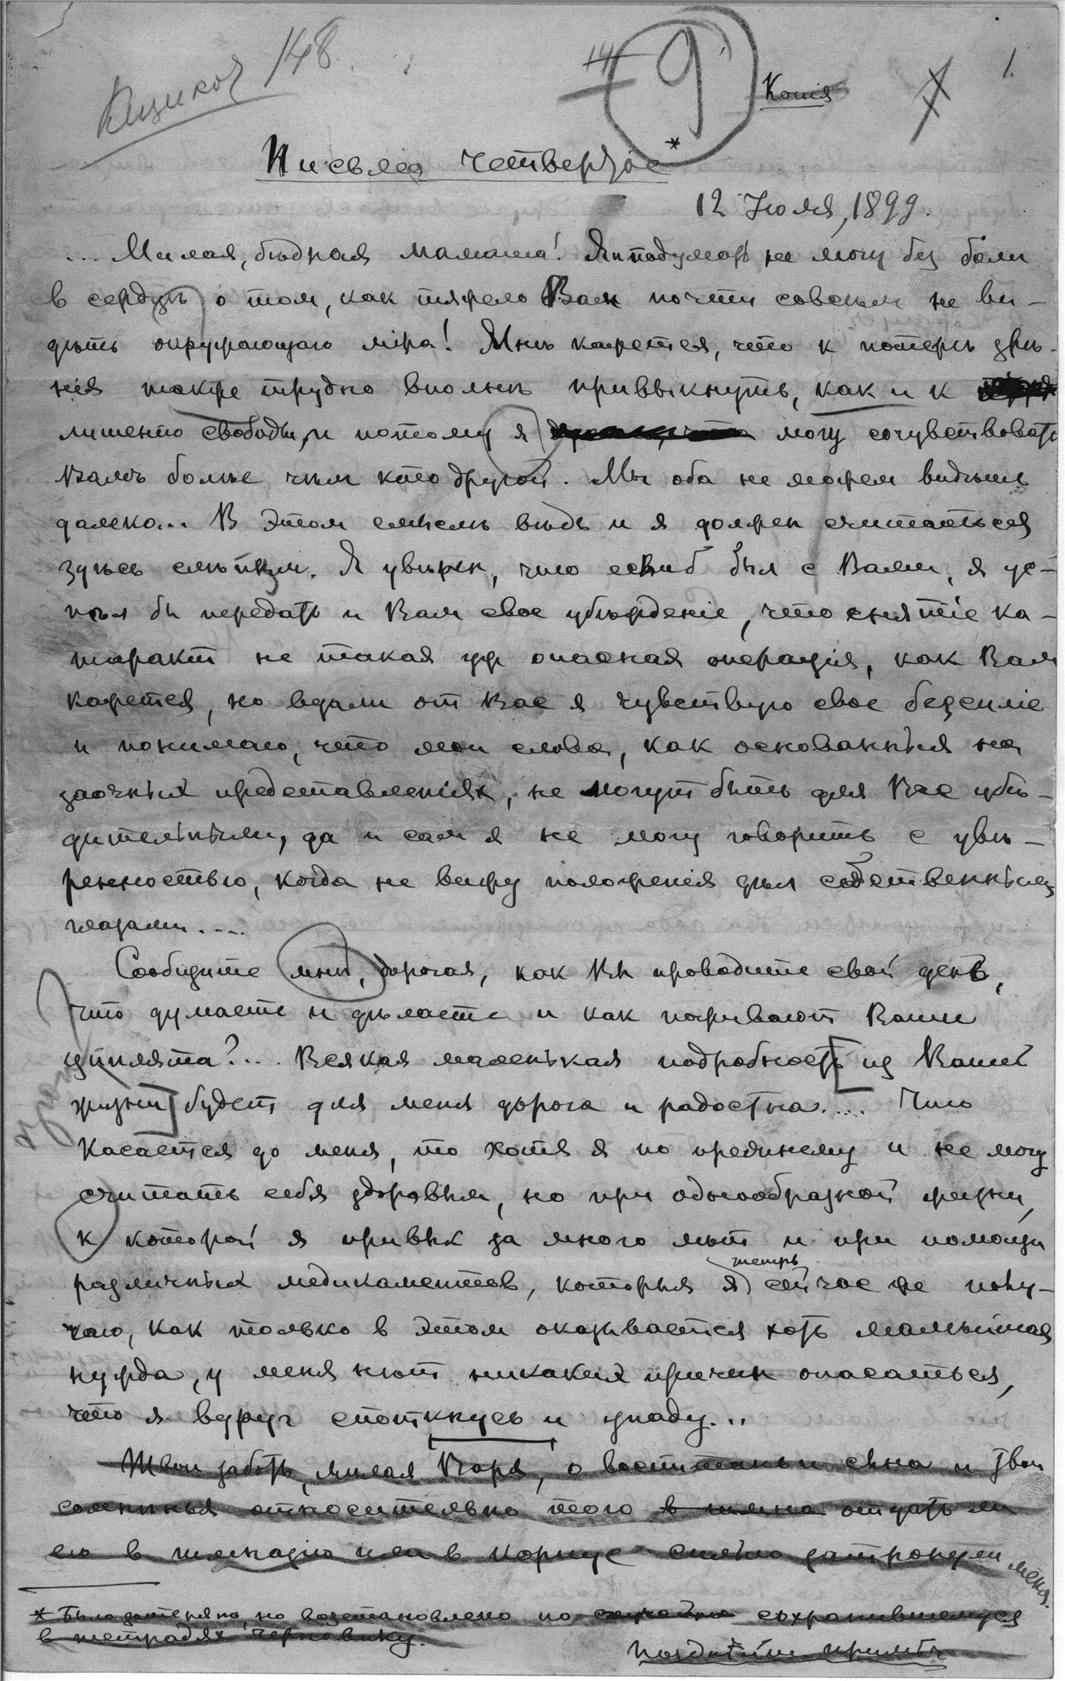 148
14
9
1
Копія
Письмо четвертое *
12 Іюля, 1899.
... Милая, бѣдная мамаша! Я и подумать не могу без боли
в сердцѣ о том, как тяжело Вам почти совсѣм не ви-
дѣть окружающаго міра! Мнѣ кажется, что к потерѣ зрѣ-
нія также трудно вполнѣ привыкнуть, как и к
лишенію свободы, и потому я могу сочувствовать
Вамъ болѣе чѣм кто другой. Мы оба не можем видѣть
далеко... В этом смыслѣ вѣдь и я должен считаться
здѣсь слѣпым. Я увѣрен, что еслиб был с Вами, я ус-
пѣл бы передать и Вам свое убѣжденіе, что снятіе ка-
таракт не такая уж опасная операція, как Вам
кажется, но вдали от Вас я чувствую свое безсиліе
и понимаю, что мои слова, как основанныя на
заочных представленіях, не могут быть для Вас убѣ-
дительными, да и сам я не могу говорить с увѣ-
ренностью, когда не вижу положенія дѣл собственными
глазами....
Сообщите мнѣ, дорогая, как Вы проводите свой день,
что думаете и дѣлаете и как поживают Ваши
цыплята?... Всякая маленькая подробность из Вашей
жизни будет для меня дорога и радостна.... Что
касается до меня, то хотя я по прежнему и не могу
считать себя здоровым, но при однообразной жизни,
к которой я привык за много лѣт и при помощи
теперь
различных медикаментов, которыя я сейчас же полу-
чаю, как только в этом оказывается хоть малѣйшая
нужда, у меня нѣт никаких причин опасаться,
что я вдруг споткнусь и упаду...
Твои заботы, милая Варя, о воспитаньи сына и твои
сомнѣнья относительно того отдать ли
его в гимназію или в корпус сильно затронули меня.
* Было затеряно, но возстановлено по случайно сохранившемуся
в тетрадях черновику.
Позднѣйш. примѣч.